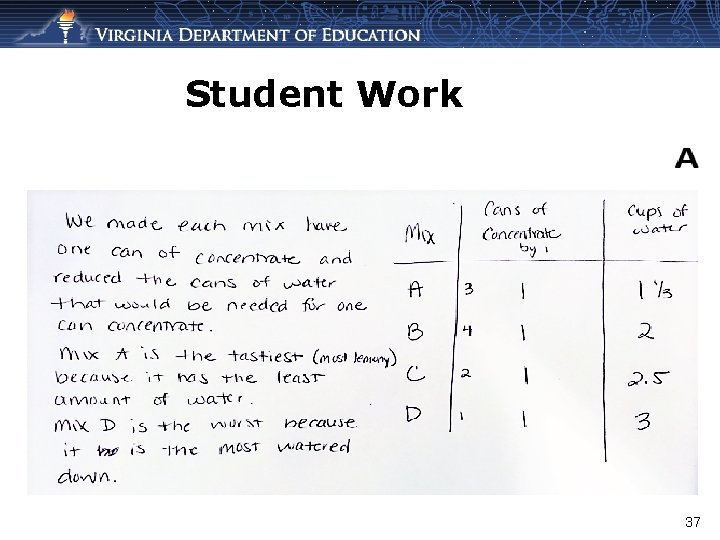 VIRGINIA DEPARTMENT OF EDUCATION
Student Work
A
We made each mix have
one can of concentrate and
reduced the cans of water
that would be needed for one
can concentrate.
Mix A is the tastiest (most lemony)
because it has the least
amount of water.
Mix D is the worst because
it is the most watered
down.
Mix Cans of Concentrate by 1 Cups of water
A 3 1 1 1/3
B 4 1 2
C 2 1 2.5
D 1 1 3
37